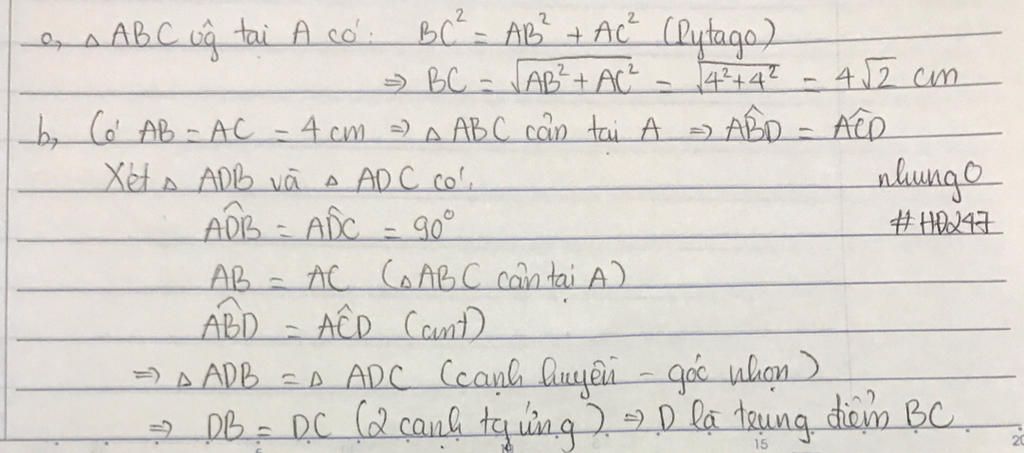 a, △ABC vg tại A có: BC² = AB² + AC² (Pytago)
⇒ BC = √(AB² + AC²) = √(4² + 4²) = 4√2 cm
b, Có AB = AC = 4 cm ⇒ △ABC cân tại A ⇒ ABD̂ = AĈD
Xét △ ADB và △ ADC có:
nhung0
ADB̂ = AD̂C = 90°
#HĐ247
AB = AC (△ABC cân tại A)
ABD̂ = AĈD (cmt)
⇒ △ ADB = △ ADC (cạnh huyền - góc nhọn)
⇒ DB = DC (2 cạnh tg ứng) ⇒ D là trung điểm BC
15
20